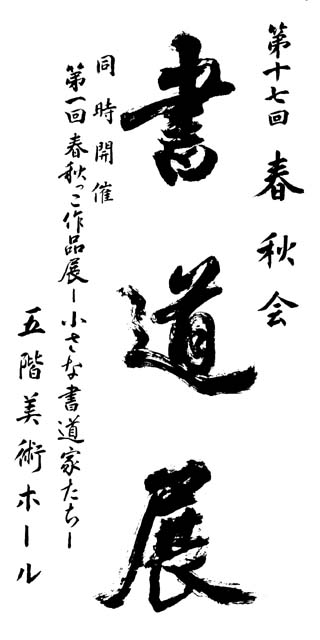 第十七回 春秋会
書道展
同時開催
第一回 春秋っこ作品展ー小さな書道家たちー
五階美術ホール